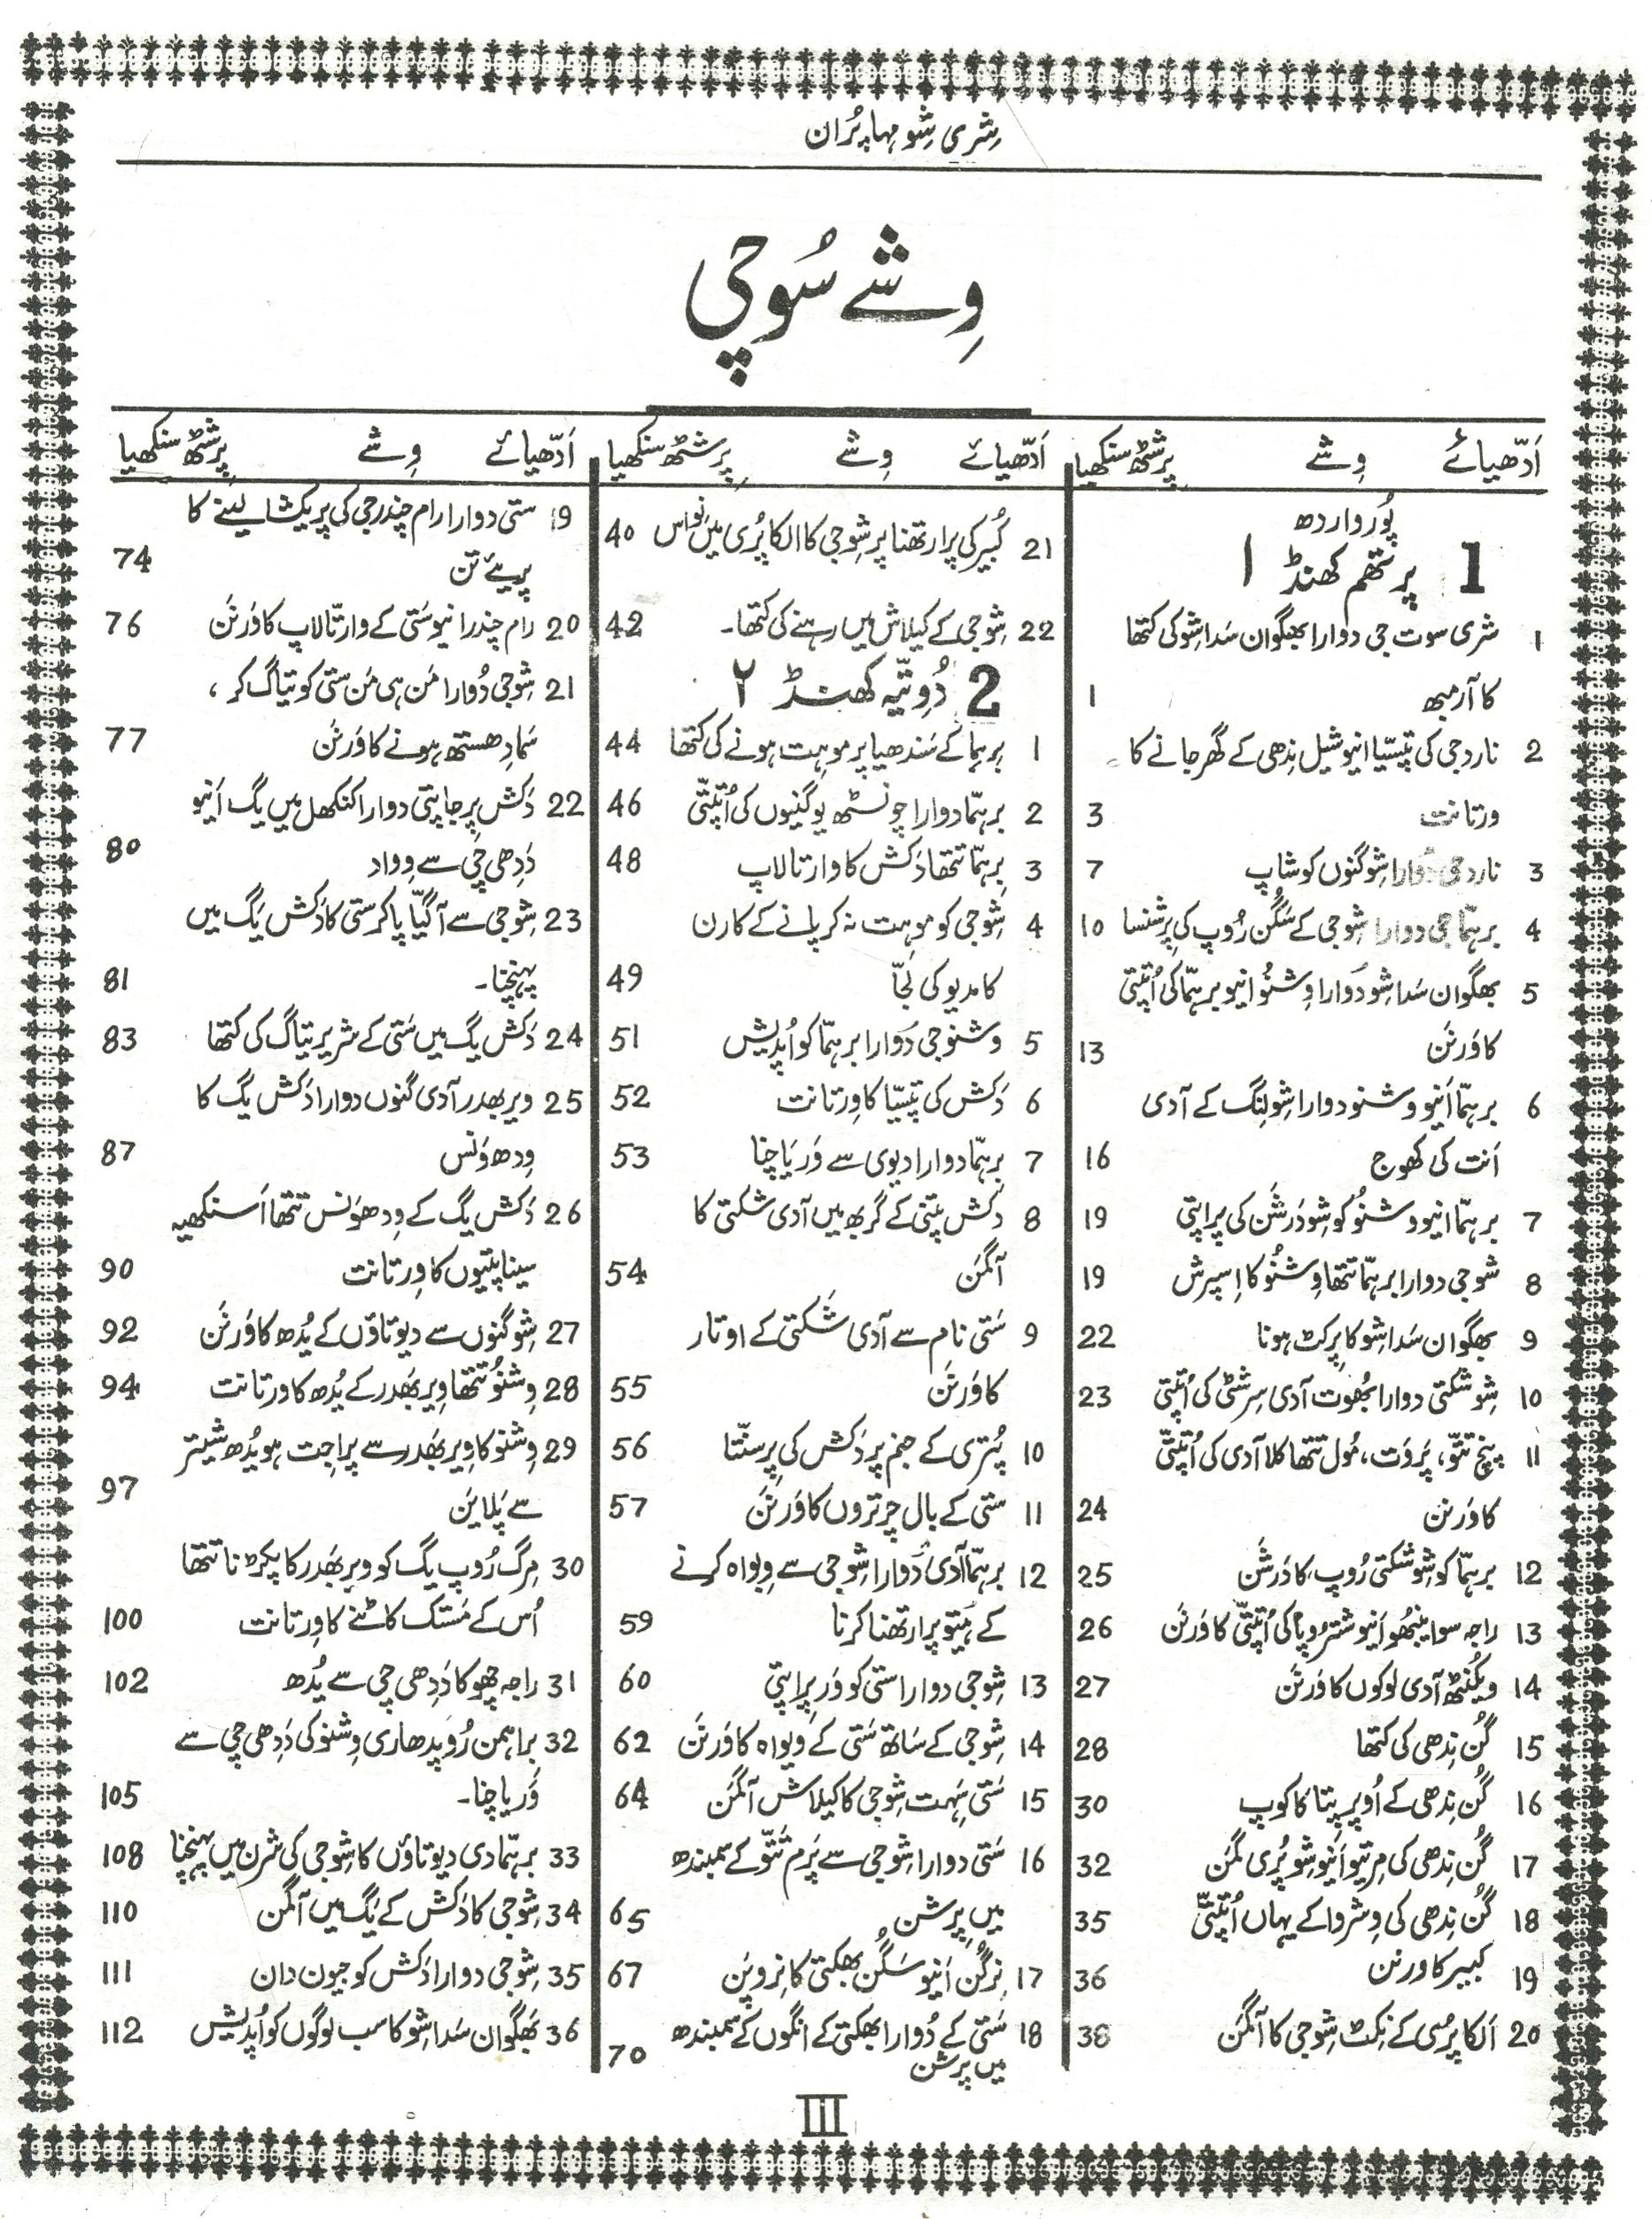 شری شِو مہاپُران
وِشے سُوچی
اَدّھیائے وِشے پرِشٹھ سنکھیا
پُوروار دھ
1 پرتھم کھنڈ ۱
1 شری سوت جی دوارا بھگوان سَدا شِو کی کتھا
کا آرمبھ 1
2 نارد جی کی تپسیّا انیو شیل نِدھی کے گھر جانے کا
ورتانت 3
3 نارد جی دوارا شِو گنوں کو شاپ 7
4 برہمّا جی دوارا شِوجی کے سَگُن رُوپ کی پرشنسا 10
5 بھگوان سَدا شِو دَوارا وِشنُو انیو برہمّا کی اُتپتی
کا وَرنَن 13
6 برہمّا اَنیو وشنو دوارا شِولِنگ کے آدی
اَنت کی کھوج 16
7 برہمّا انیو وشنُو کو شِو دَرشَن کی پراپتی 19
8 شوجی دوارا برہمّا تتھا وِشنُو کا اِسپرش 19
9 بھگوان سَدا شِو کا پرکٹ ہونا 22
10 شِو شکتی دوارا بھُوت آدی سرِشٹی کی اُتپتی 23
11 پنچ تتّو، پَروَت، مُول تتھا کلا آدی کی اُتپتّی
کا وَرنن 24
12 برہمّا کو شِو شکتی رُوپ کا دَرشَن 25
13 راجہ سوایمبھُو اَنیو شترُوپا کی اُتپتّی کا وَرنَن 26
14 ویکُنٹھ آدی لوکوں کا وَرنَن 27
15 گُن نِدھی کی کتھا 28
16 گُن نِدھی کے اُوپر پِتا کا کوپ 30
17 گُن نِدھی کی مرِتیو اَنیو شِو پُری گمَن 32
18 گُن نِدھی کی وِشروا کے یہاں اُتپتّی 35
19 کبیر کا ورنن 36
20 اَلکا پُرسی کے نِکٹ شِوجی کا آگمَن 38
اَدّھیائے وِشے پرِشٹھ سنکھیا
21 کُبیر کی پرارتھنا پر شِوجی کا الکا پُری میں نواس 40
22 شِوجی کے کیلاش میں رہنے کی کتھا۔ 42
2 دُوِتیّہ کھنڈ ۲
1 برہما کے سَندھیا پر موہت ہونے کی کتھا 44
2 برہمّا دوارا چونسٹھ یوگنیوں کی اُتپتّی 46
3 برہمّا تتھا دَکش کا وارتالاپ 48
4 شِوجی کو موہت نہ کر پانے کے کارن
کامدیو کی لَجّا 49
5 وشنوجی دَوارا برہمّا کو اُپدیش 51
6 دَکش کی تپسیّا کا وِرتانت 52
7 برہمّا دوارا دیوی سے وَر یاچنا 53
8 دکش پتنی کے گربھ میں آدی شکتی کا
آگمَن 54
9 سَتی نام سے آدی شَکتی کے اوتار
کا وَرنَن 55
10 پُتری کے جنم پر دَکش کی پرسنّتا 56
11 ستی کے بال چرتروں کا وَرنَن 57
12 برہمّا آدی دَوارا شِوجی سے وِیواہ کرنے
کے ہَیتو پرارتھنا کرنا 59
13 شِوجی دوارا ستی کو وَر پراپتی 60
14 شِوجی کے ساتھ سَتی کے وِیواہ کا وَرنَن 62
15 سَتی سَہِت شِوجی کا کیلاش آگمَن 64
16 سَتی دوارا شِوجی سے پَرم تَتّو کے سمبندھ
میں پرشن 65
17 نِرگُن اَنیو سَگُن بھکتی کا نِروپَن 67
18 سَتی کے دُوارا بھکتی کے انگوں کے سمبندھ
میں پرشن 70
اَدّھیائے وِشے پرِشٹھ سنکھیا
19 ستی دوارا رام چندر جی کی پریکشا لینے کا
پریے تن 74
20 رام چندر انیو سَتی کے وارتّالاپ کا وَرنَن 76
21 شِوجی دُوارا مَن ہی مَن ستی کو تیاگ کر،
سَمادھستھ ہونے کا وَرنَن 77
22 دَکش پرجاپتی دوارا کنکھل میں یگ اَنیو
دَدِھی چی سے وِواد 80
23 شِوجی سے آگیّا پا کر ستی کا دَکش یَگ میں
پہنچنا۔ 81
24 دَکش یگ میں سَتی کے شریر تیاگ کی کتھا 83
25 ویر بھدر آدی گنوں دوارا دَکش یگ کا
وِدھوَنس 87
26 دَکش یگ کے وِدھوَنس تتھا اَسنکھیہ
سیناپتیوں کا وِرتانت 90
27 شِوگنوں سے دیوتاؤں کے یُدھ کا وَرنَن 92
28 وِشنُو تتھا وِیر بھَدر کے یُدھ کا ورتانت 94
29 وِشنو کا وِیر بھَدر سے پراجِت ہو یُدھ شیتر
سے پَلایَن 97
30 مِرگ رُوپ یگ کو ویر بھَدر کا پکڑنا تتھا
اُس کے مَستک کاٹنے کا وِرتانت 100
31 راجہ چھو کا دَدِھی چی سے یُدھ 102
32 براہمن رُوپدھاری وِشنو کی دَدِھی چی سے
وَر یاچنا۔ 105
33 برہمّادی دیوتاؤں کا شِوجی کی شرن میں پہنچنا 108
34 شِوجی کا دَکش کے یَگ میں آگمن 110
35 شِوجی دوارا دَکش کو جیون دان 111
36 بھَگوان سَدا شِو کا سب لوگوں کو اُپدیش 112
III